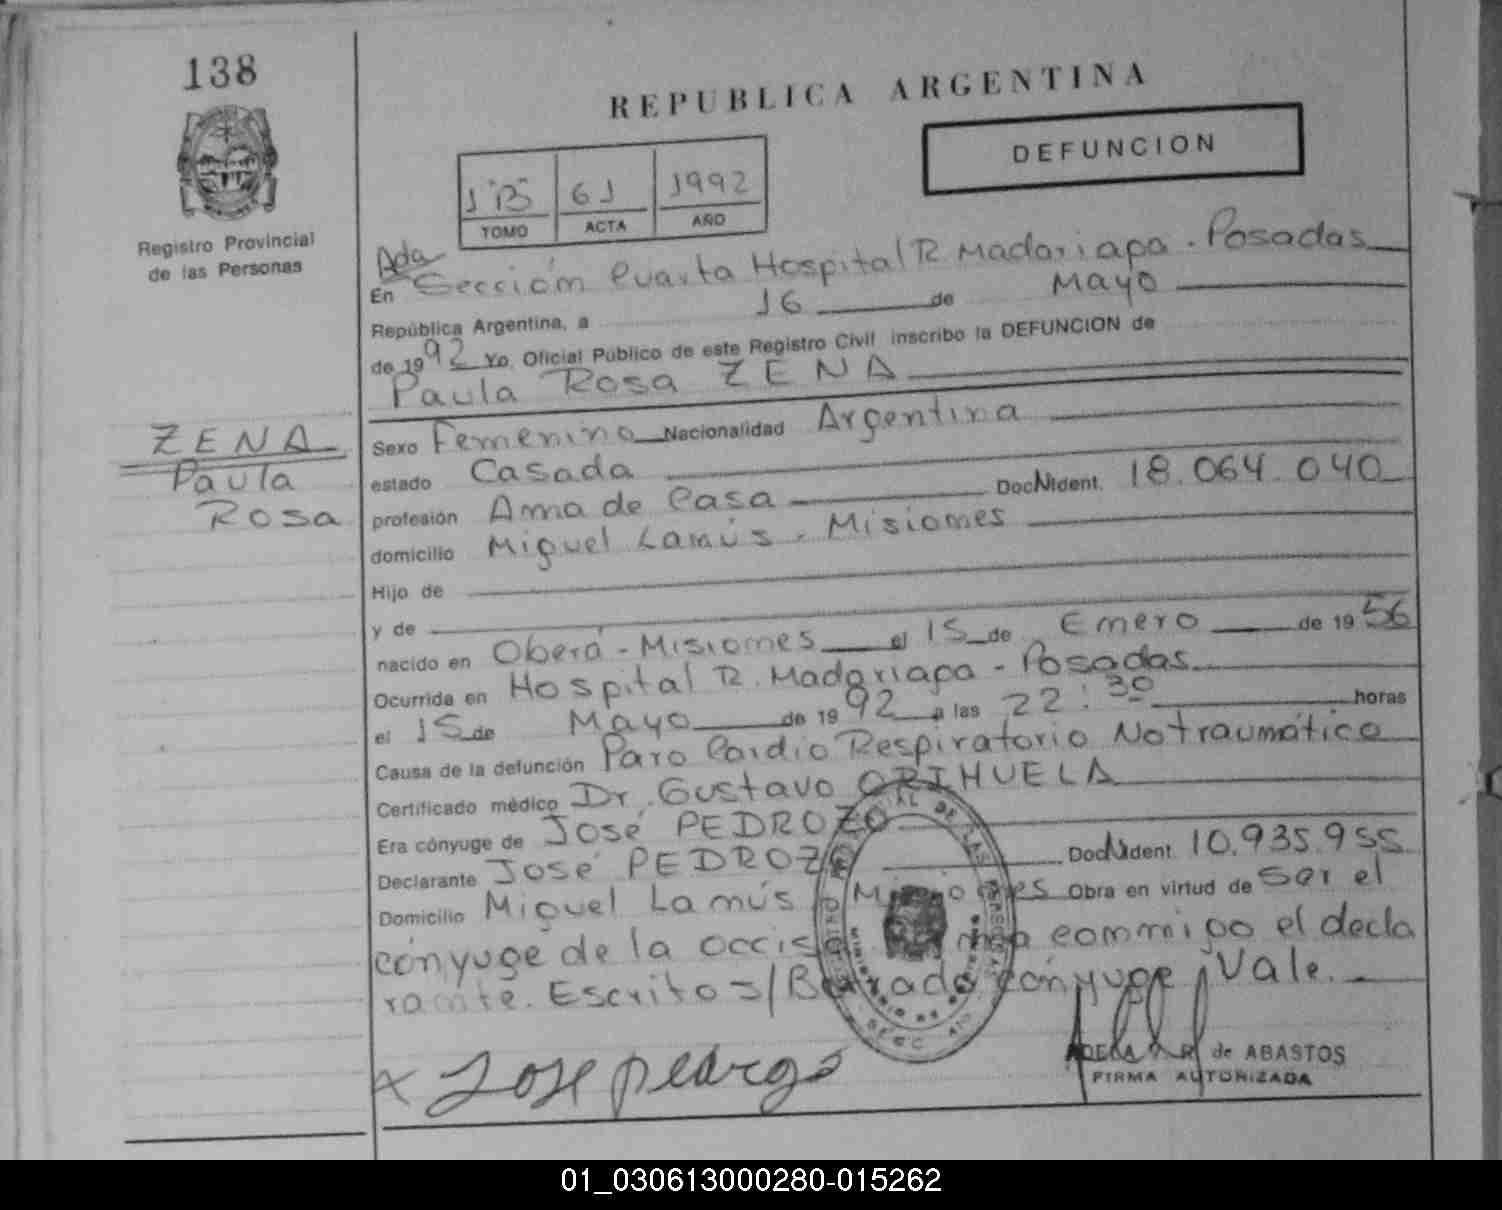 138
REPUBLICA ARGENTINA
DEFUNCION
1"B" 61 1992
TOMO ACTA AÑO
Registro Provincial
de las Personas
Ada
En Sección Cuarta Hospital R. Madariaga. Posadas
República Argentina, a 16 de Mayo
de 1992 Yo, Oficial Público de este Registro Civil inscribo la DEFUNCION de
Paula Rosa ZENA
ZENA
Paula
Rosa
Sexo Femenino Nacionalidad Argentina
estado Casada
profesión Ama de Casa Doc N Ident. 18.064.040
domicilio Miguel Lamús. Misiones
Hijo de
y de
nacido en Oberá - Misiones el 15 de Enero de 1956
Ocurrida en Hospital R. Madariaga - Posadas
el 15 de Mayo de 1992 a las 22:30 horas
Causa de la defunción Paro Cardio Respiratorio No traumático
Certificado médico Dr. Gustavo ORIHUELA
Era cónyuge de José PEDROZO
Declarante José PEDROZO Doc N Ident 10.935.955
Domicilio Miguel Lamús Misiones Obra en virtud de Ser el
cónyuge de la occisa conmigo el decla
rante. Escrito s/Borrado cónyuge; Vale.
x Jose pedrozo
de ABASTOS
FIRMA AUTORIZADA
01_030613000280-015262